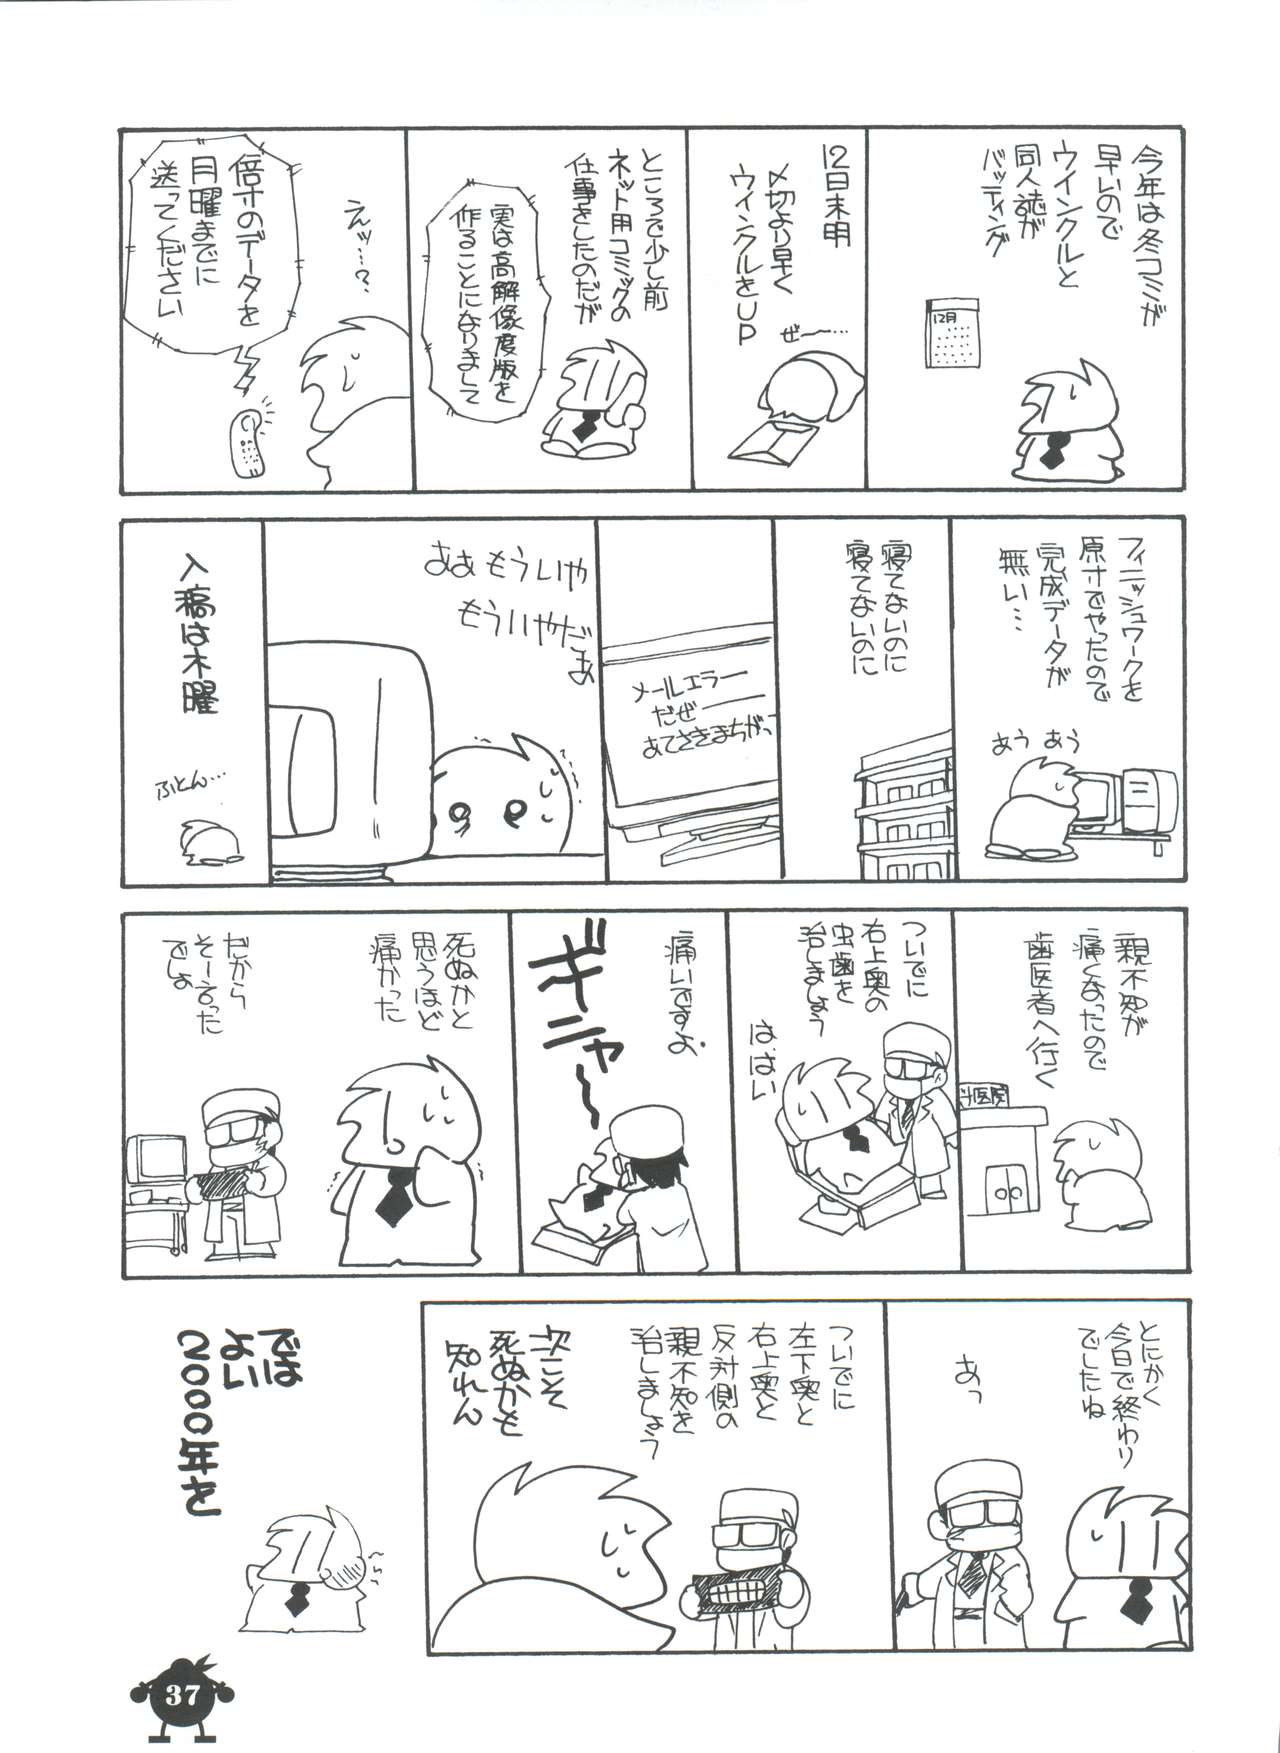 今年は冬コミが
早いので
ウインクルと
同人誌が
バッティング
12月
12日未明
〆切より早く
ウィンクルをUP
ぜ〜〜…
ところで少し前
ネット用コミックの
仕事をしたのだが
実は高解像度版を
作ることになりまして
えッ…?
倍寸のデータを
月曜までに
送ってください
フィニッシュワークを
原寸でやったので
完成データが
無い…
あう あう
寝てないのに
寝てないのに
メールエラー
だぜ――
あてさきまちがっ
ああ もういや
もういやだ
ぁ
入稿は木曜
ふとん…
親不知が
痛くなったので
歯医者へ行く
医院
ついでに
右上奥の
虫歯を
治しましょう
は、はい
痛いですよ
ギニャ〜
死ぬかと
思うほど
痛かった
だから
そー言った
でしょ
とにかく
今日で終わり
でしたね
あっ
ついでに
左下奥と
右上奥と
反対側の
親不知を
治しましょう
次こそ
死ぬかも
知れん
では
よい
2000年を
37